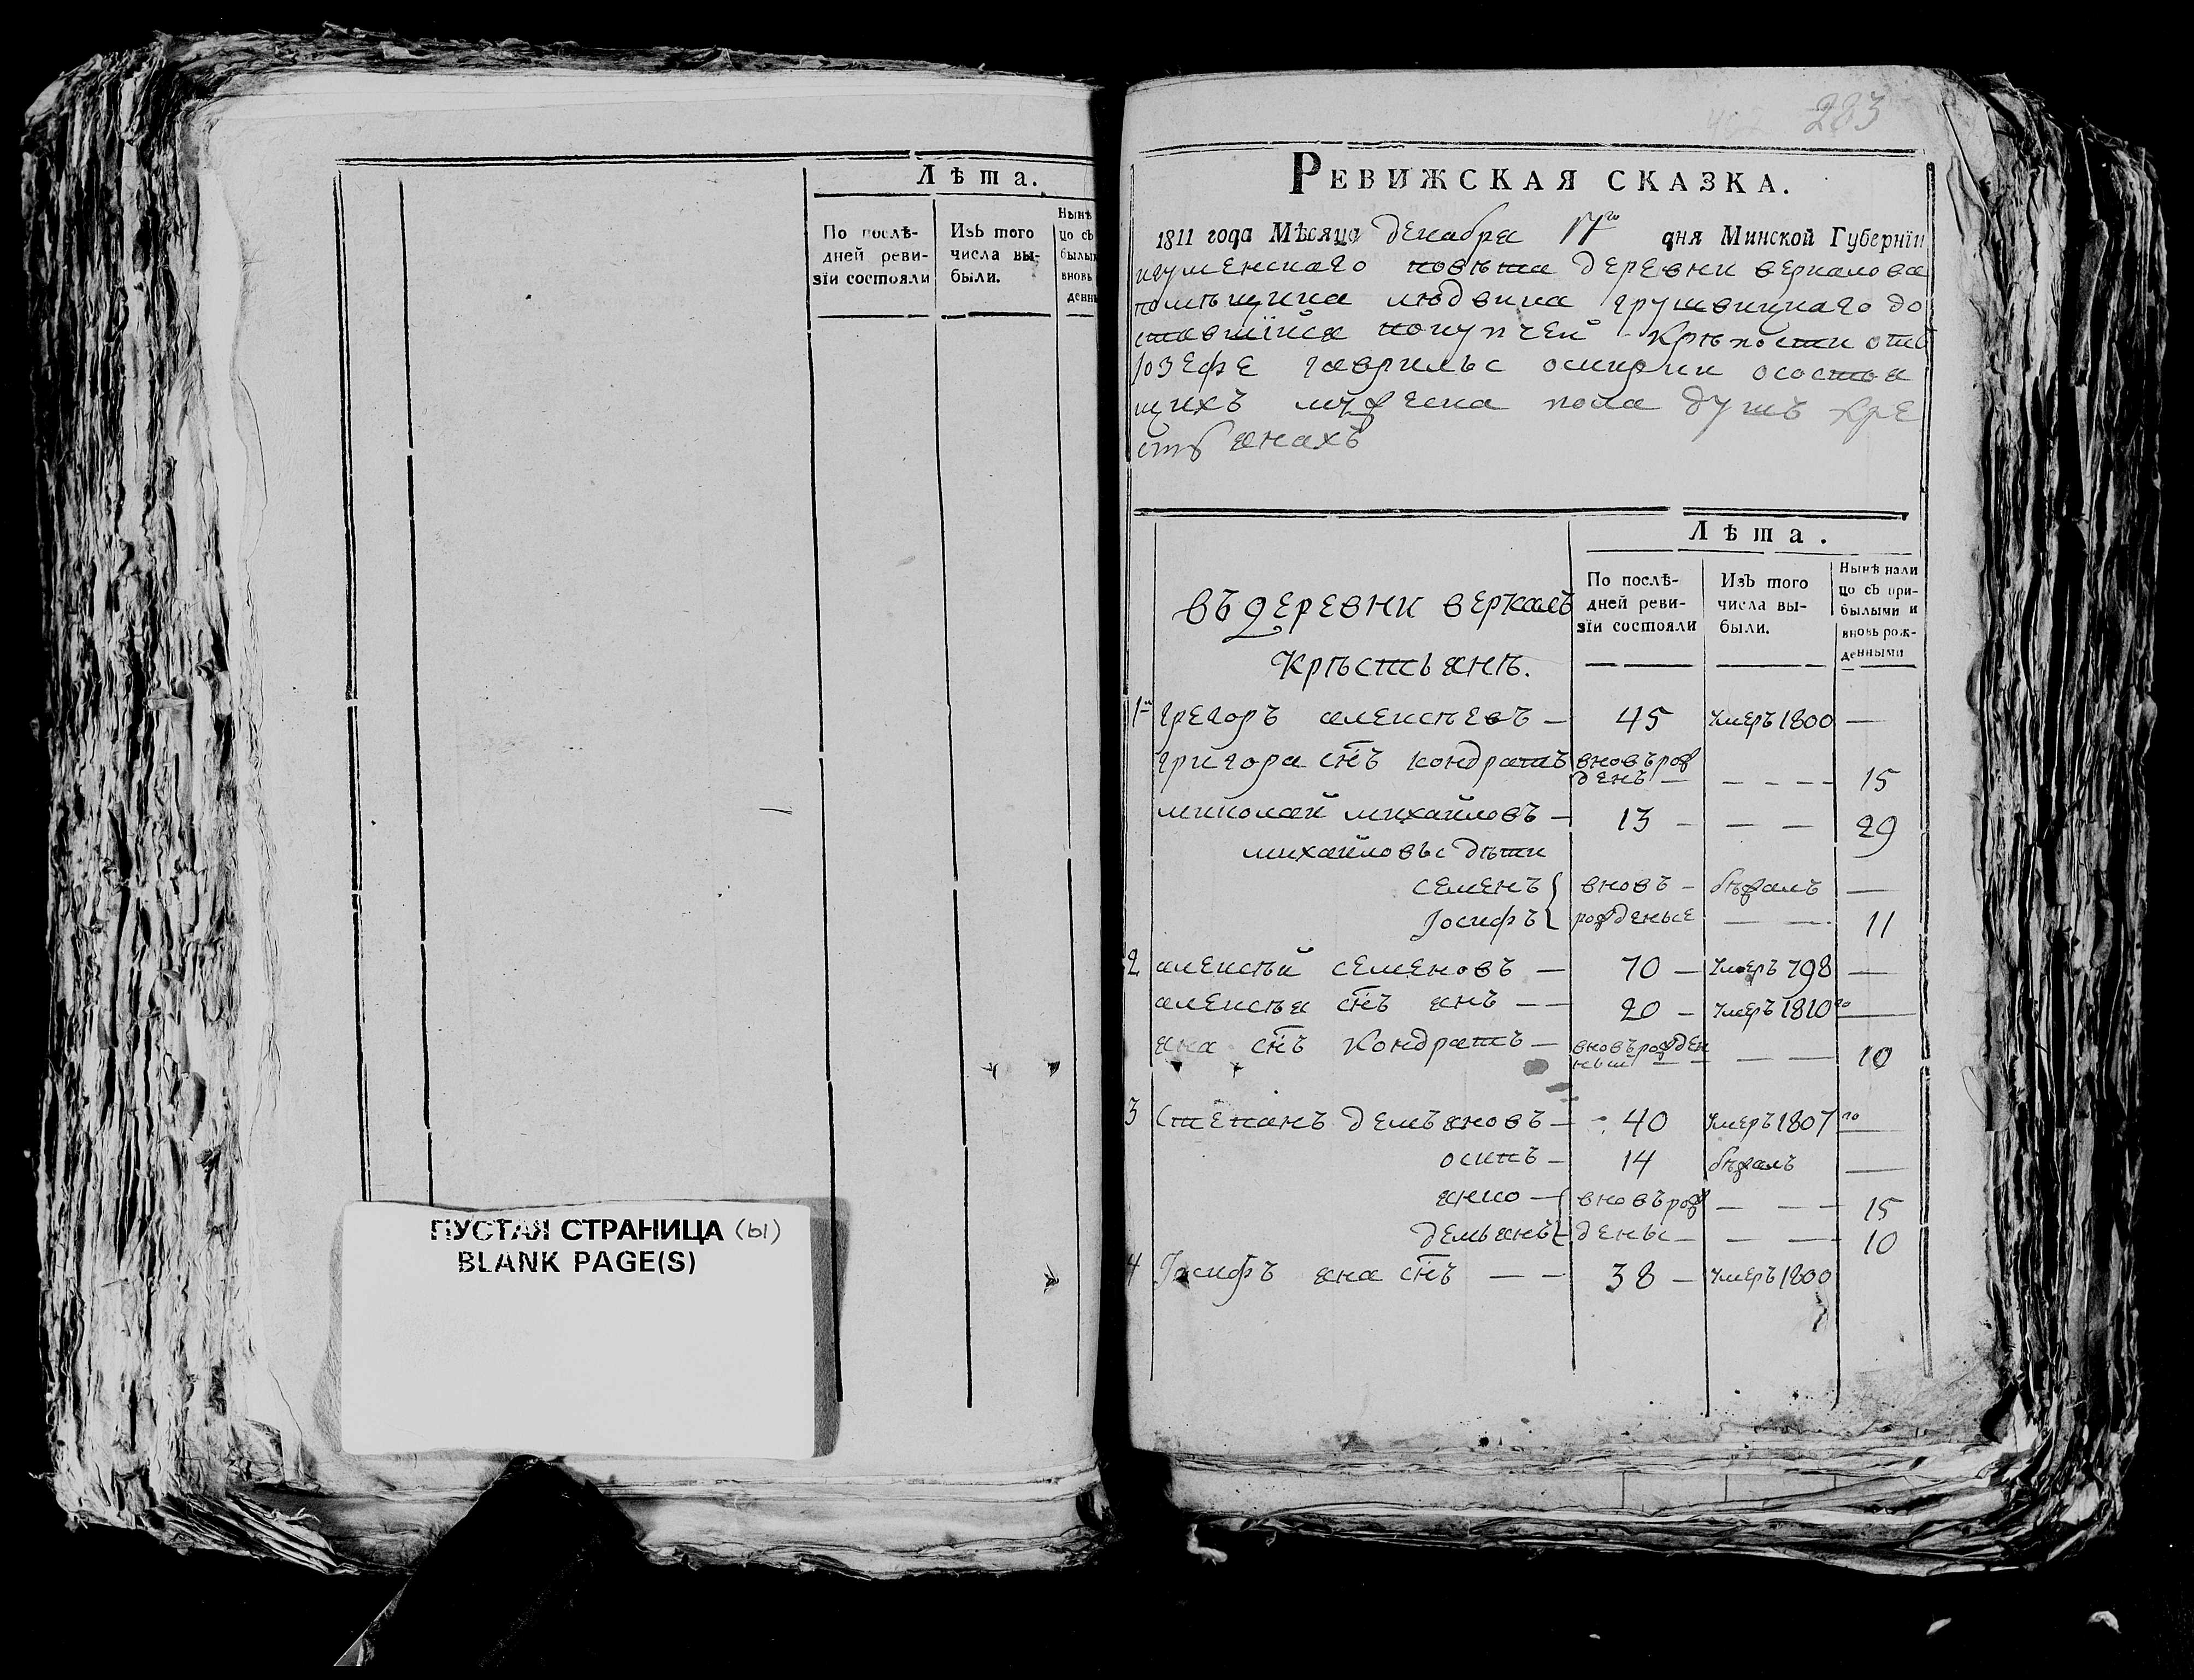 Лѣта.
По послѣ-
дней реви-
зїи состояли
Изъ того
числа вы-
были.
Нынѣ
цо съ
былым
вновь
денн
ПУСТАЯ СТРАНИЦА (ы)
BLANK PAGE(S)
283
РЕВИЖСКАЯ СКАЗКА.
1811 года Мѣсяца декабря 17го дня Минской Губернїи
игуменскаго повѣта деревни веркалова
помѣщика людвика грушвицкаго до
ставшїйся покупчей крѣпости отъ
Юзефе гаврилы осипли осостоя
щихъ мужеска пола душъ кре
стьянахъ
Лѣта.
въ деревни веркалѣ
Крѣстьянѣ.
По послѣ-
дней реви-
зїи состояли
Изъ того
числа вы-
были.
Нынѣ нали
цо съ при-
былыми и
вновь рож-
денными
1й грегоръ алексѣевъ — 45 умеръ 1800 —
григора сн҃ъ кондратъ вновърож
денъ — — — — 15
миколай михайловъ — 13 — — — 29
михайловы дѣти
семенъ вновь — бѣжалъ —
Іосифъ рожденые — — 11
2 алексѣй семеновъ — 70 — умеръ 798 —
алексѣя сн҃ъ янъ — — 20 — умеръ 1810го —
яна сн҃ъ Кондратъ — вновърожден
ный — — — 10
3 Степанъ демъяновъ — 40 умеръ 1807го —
осипъ — 14 бѣжалъ —
янко — вновърож — — — 15
демьянъ — дены — — — 10
4 Іосифъ яна сн҃ъ — — 38 — умеръ 1800